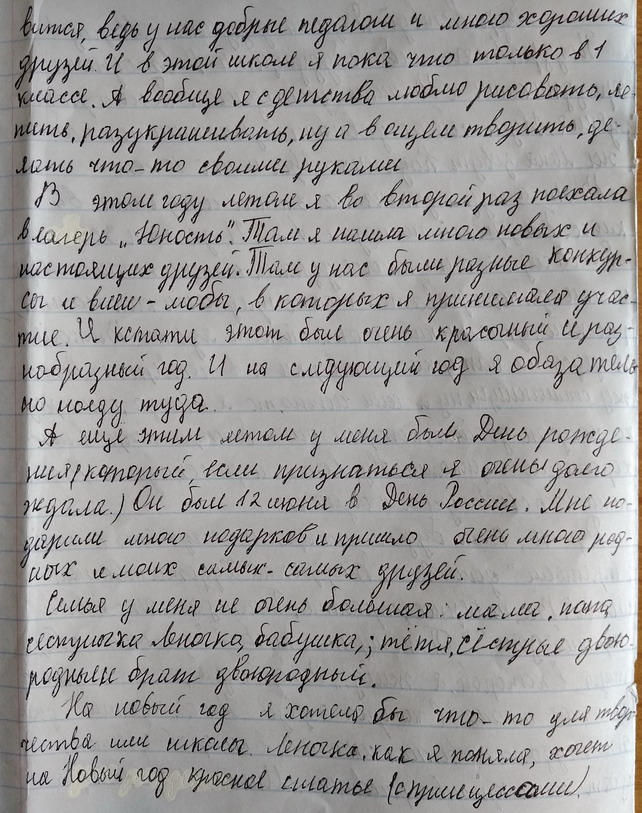 вится, ведь у нас добрые педагоги и много хороших
друзей. И в этой школе я пока что только в 1
классе. А вообще я с детства люблю рисовать, ле-
пить, разукрашивать, ну а в ощем творить, де-
лать что-то своими руками
В этом году летом я во второй раз поехала
в лагерь „Юность". Там я нашла много новых и
настоящих друзей. Там у нас были разные конкур-
сы и флеш-мобы, в которых я принимала учас-
тие. И кстати этот был очень красочный и раз-
нобразный год. И на следующий год я обезатель
но поеду туда.
А еще этим летом у меня был День рожде-
ния (который, если признаться я очень долго
ждала.) Он был 12 июня в День России. Мне по-
дарили много подарков и пришло очень много род-
ных и моих самых-самых друзей.
Семья у меня не очень большая: мама, папа
сестрычка Леночка, бабушка,; тётя, сёстры двою-
родные брат двоюродный.
На новый год я хотела бы что-то для твор-
чества или школы. Леночка, как я поняла, хочет
на Новый год красное платье (с принцессами).